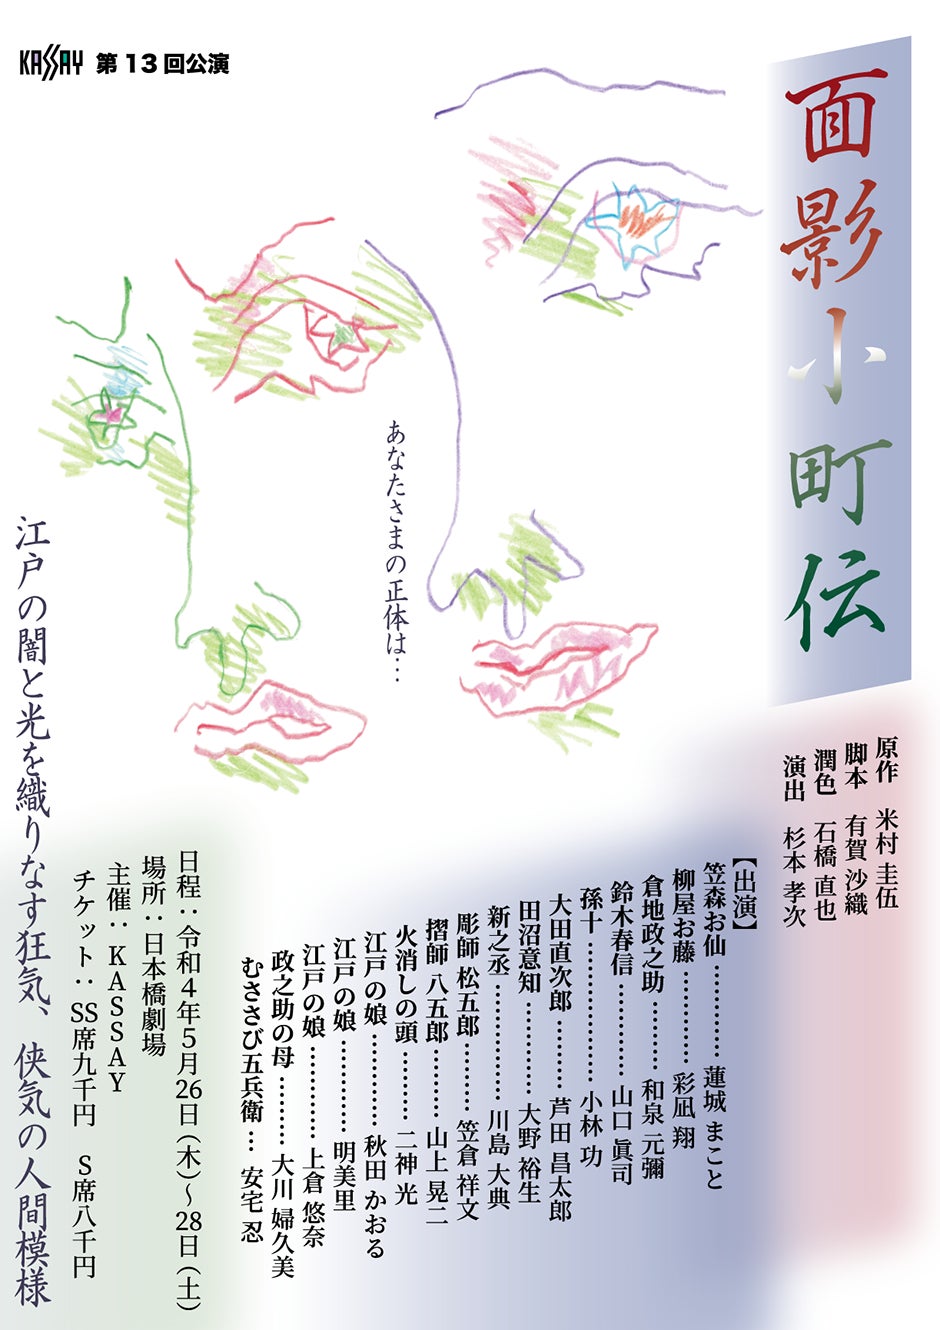 KASSAY 第13回公演
面影小町伝
原作 米村 圭伍
脚本 有賀 沙織
潤色 石橋 直也
演出 杉本 孝次
あなたさまの正体は…
【出演】
笠森お仙…………蓮城 まこと
柳屋お藤…………彩凪 翔
倉地政之助………和泉 元彌
鈴木春信…………山口 眞司
孫十………………小林 功
大田直次郎………芦田 昌太郎
田沼意知…………大野 裕生
新之丞……………川島 大典
彫師 松五郎………笠倉 祥文
摺師 八五郎………山上 晃二
火消しの頭………二神 光
江戸の娘…………秋田 かおる
江戸の娘…………明美里
江戸の娘…………上倉 悠奈
政之助の母………大川 婦久美
むささび五兵衛…安宅 忍
日程：令和４年５月26日（木）～28日（土）
場所：日本橋劇場
主催：ＫＡＳＳＡＹ
チケット：SS席九千円　Ｓ席八千円
江戸の闇と光を織りなす狂気、侠気の人間模様